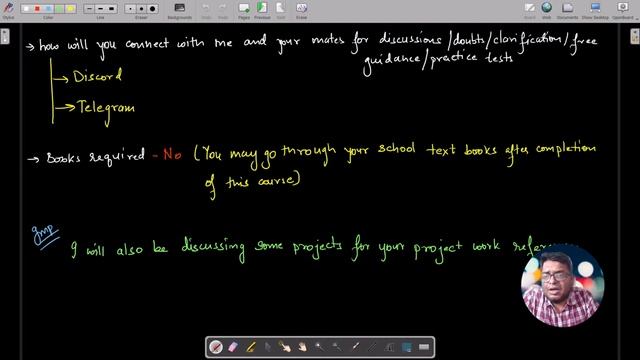 Stroke
Color
Backgrounds
Undo
Redo
Pages
Previous
Next
Erase
Board
Web
Documents
Show Desktop
OpenBoard
→ how will you connect with me and your mates for discussions/doubts/clarification/free
guidance/practice tests
→ Discord
→ Telegram
→ Books required - No (You may go through your school text books after completion
of this course)
Imp
I will also be discussing some projects for your project work